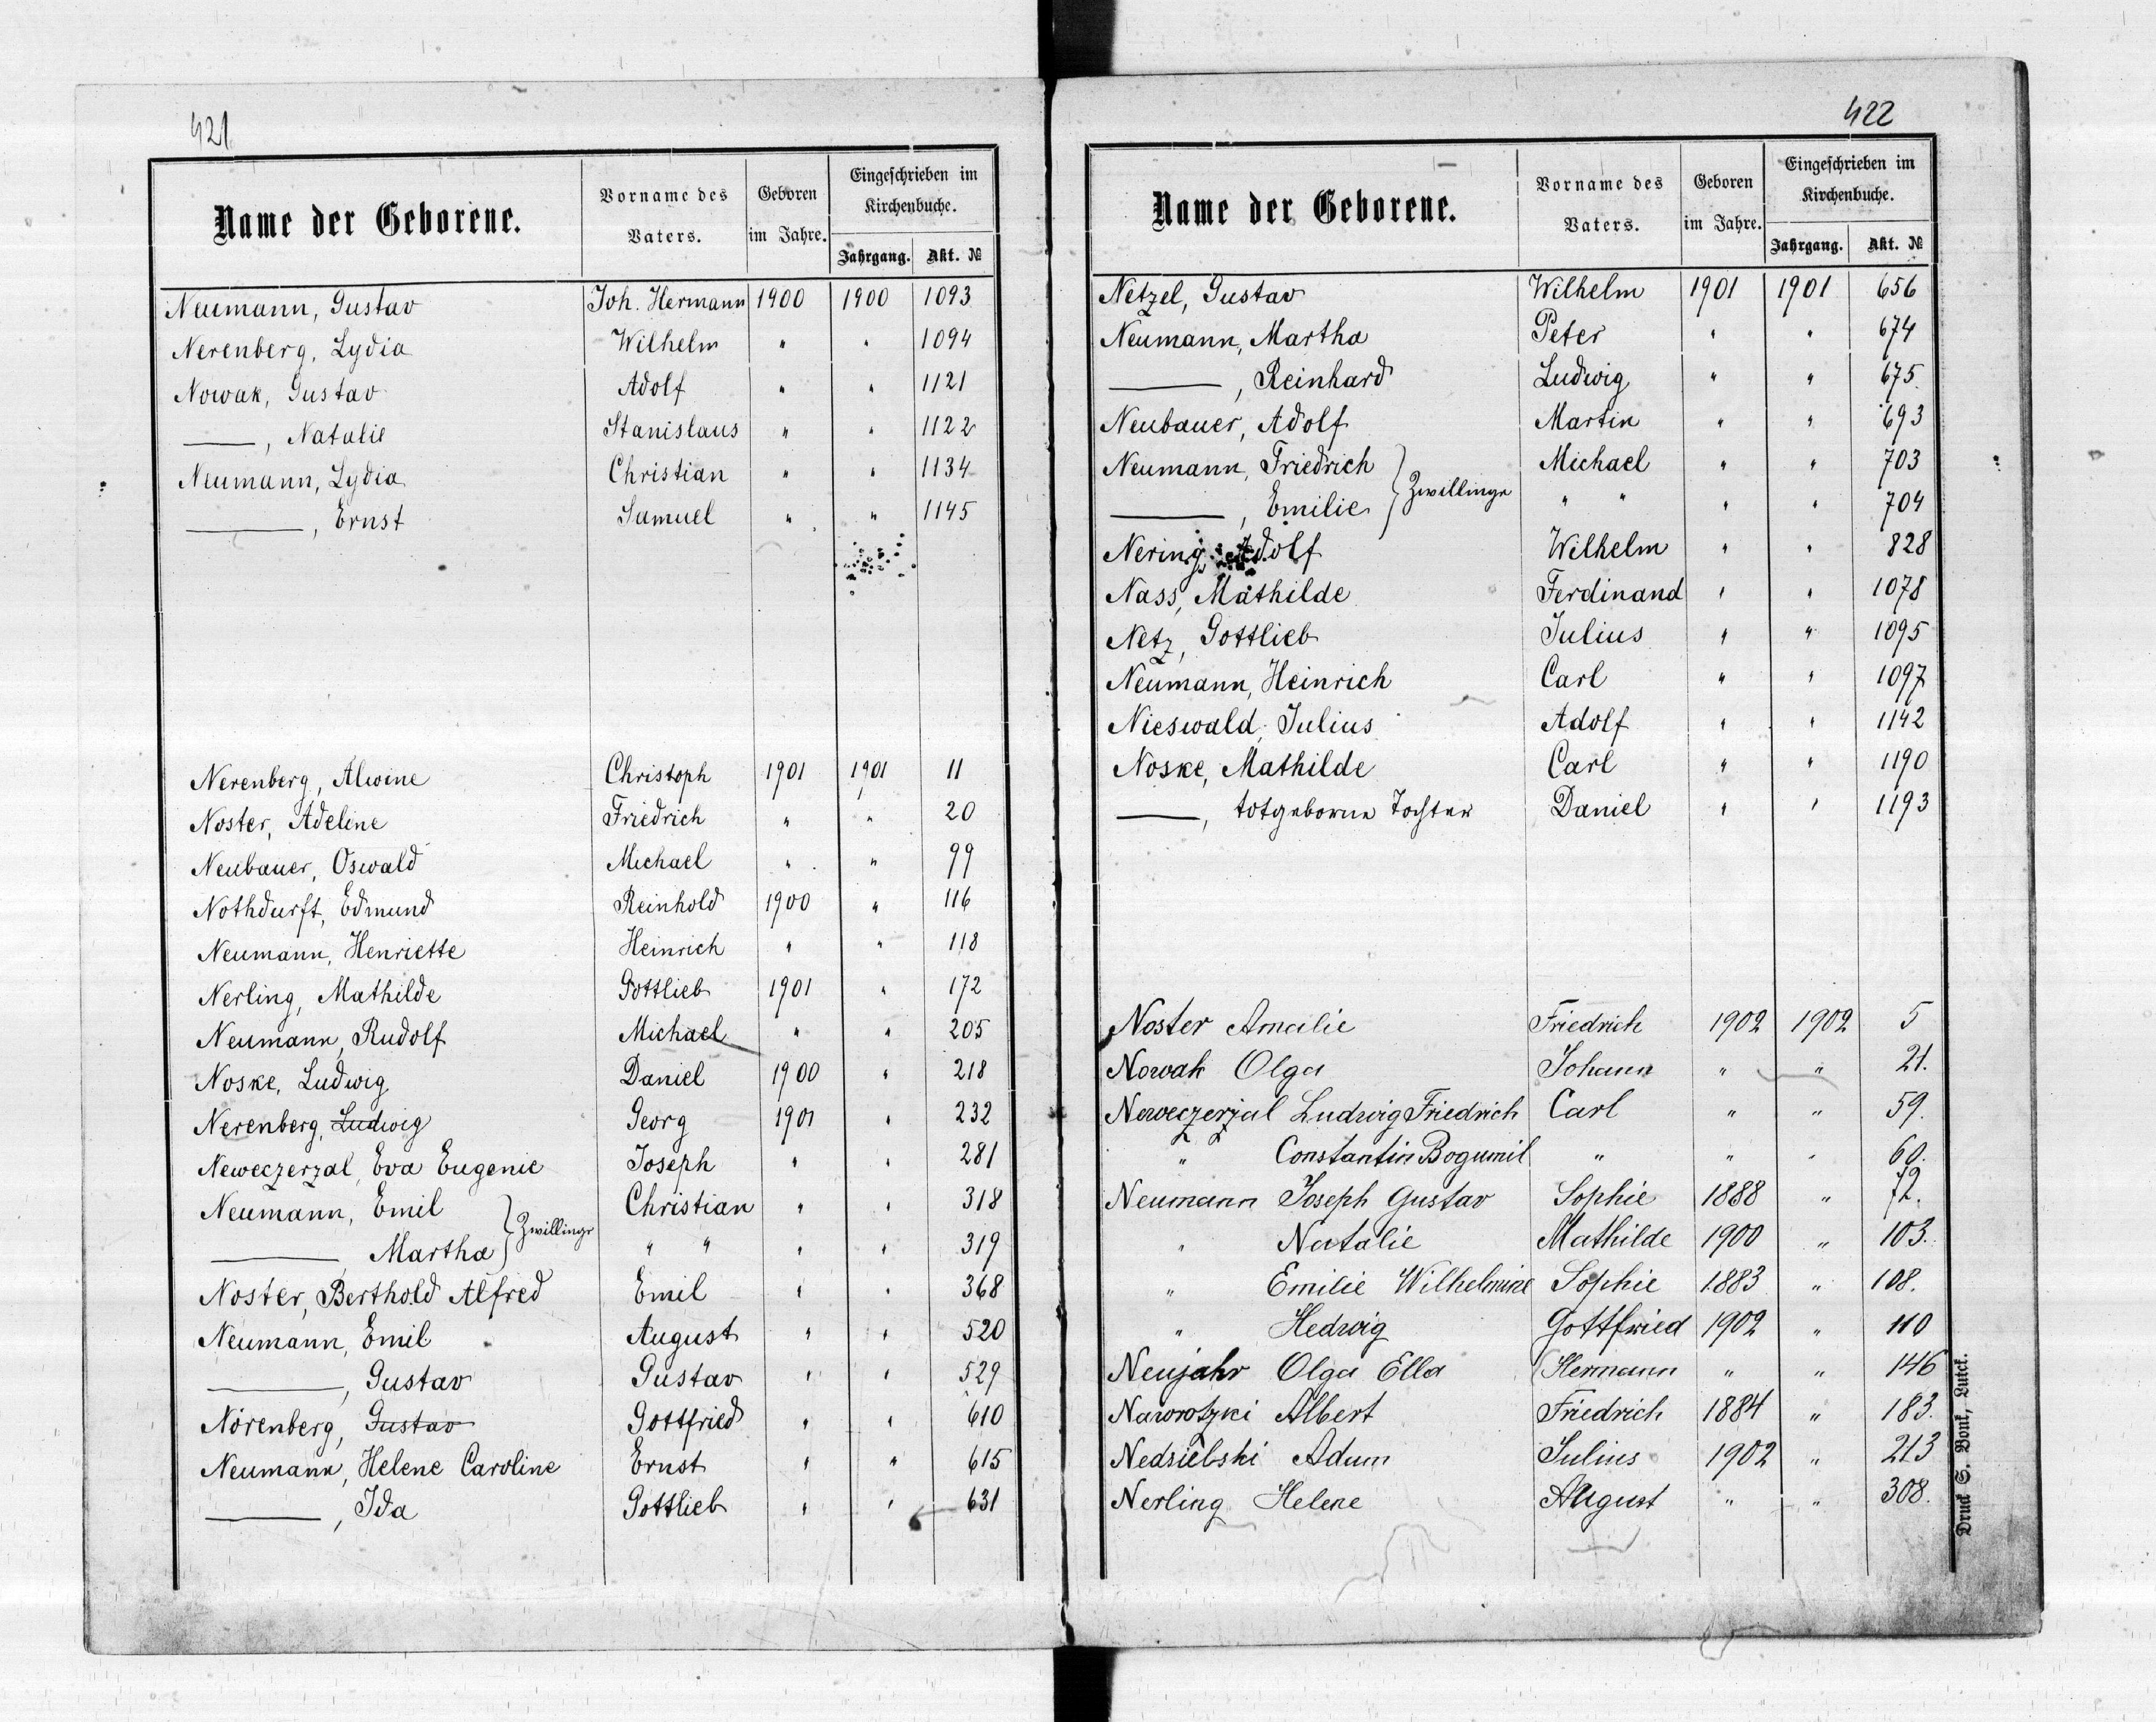 421
Name der Geborene. Vorname des Vaters. Geboren im Jahre. Eingeschrieben im Kirchenbuche. Jahrgang. Akt. №
Neumann, Gustav Joh. Hermann 1900 1900 1093
Nerenberg, Lydia Wilhelm " " 1094
Nowak, Gustav Adolf " " 1121
——, Natalie Stanislaus " " 1122
Neumann, Lydia Christian " " 1134
——, Ernst Samuel " " 1145
Nerenberg, Alwine Christoph 1901 1901 11
Noster, Adeline Friedrich " " 20
Neubauer, Oswald Michael " " 99
Nothdurft, Edmund Reinhold 1900 " 116
Neumann, Henriette Heinrich " " 118
Nerling, Mathilde Gottlieb 1901 " 172
Neumann, Rudolf Michael " " 205
Noske, Ludwig Daniel 1900 " 218
Nerenberg, Ludwig Georg 1901 " 232
Neweczerzal, Eva Eugenie Joseph " " 281
Neumann, Emil } Zwillinge Christian " " 318
——, Martha " " " " 319
Noster, Berthold Alfred Emil " " 368
Neumann, Emil August " " 520
——, Gustav Gustav " " 529
Nörenberg, Gustav Gottfried " " 610
Neumann, Helene Caroline Ernst " " 615
——, Ida Gottlieb " " 631
422
Name der Geborene. Vorname des Vaters. Geboren im Jahre. Eingeschrieben im Kirchenbuche. Jahrgang. Akt. №
Netzel, Gustav Wilhelm 1901 1901 656
Neumann, Martha Peter " " 674
——, Reinhard Ludwig " " 675
Neubauer, Adolf Martin " " 693
Neumann, Friedrich } Zwillinge Michael " " 703
——, Emilie " " " " 704
Nering, Adolf Wilhelm " " 828
Nass, Mathilde Ferdinand " " 1078
Netz, Gottlieb Julius " " 1095
Neumann, Heinrich Carl " " 1097
Nieswald, Julius Adolf " " 1142
Noske, Mathilde Carl " " 1190
——, totgeborne Tochter Daniel " " 1193
Noster Amalie Friedrich 1902 1902 5
Nowak Olga Johann " " 21.
Neweczerzal Ludwig Friedrich Carl " " 59.
" Constantin Bogumil " " " 60.
Neumann Joseph Gustav Sophie 1888 " 72.
" Natalie Mathilde 1900 " 103.
" Emilie Wilhelmine Sophie 1883 " 108.
" Hedwig Gottfried 1902 " 110
Neujahr Olga Ella Hermann " " 146
Nawrotzki Albert Friedrich 1884 " 183.
Nedsielski Adam Julius 1902 " 213
Nerling Helene August " " 308.
Druck S. Bonk, Luck.